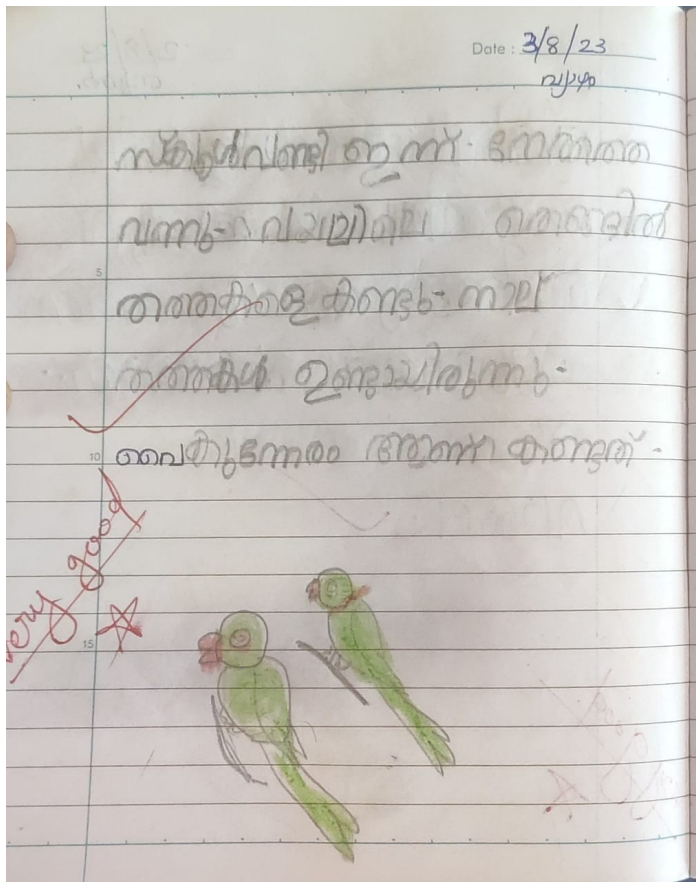 Date : 3/8/23
വ്യാഴം
സ്കൂൾവണ്ടി ഇന്ന് നേരത്തെ
വന്നു. വയലിലെ തെങ്ങിൽ
തത്തകളെ കണ്ടു. നാല്
തത്തകൾ ഉണ്ടായിരുന്നു.
5
10
വൈകുന്നേരം ആണ് കണ്ടത്.
very good
15